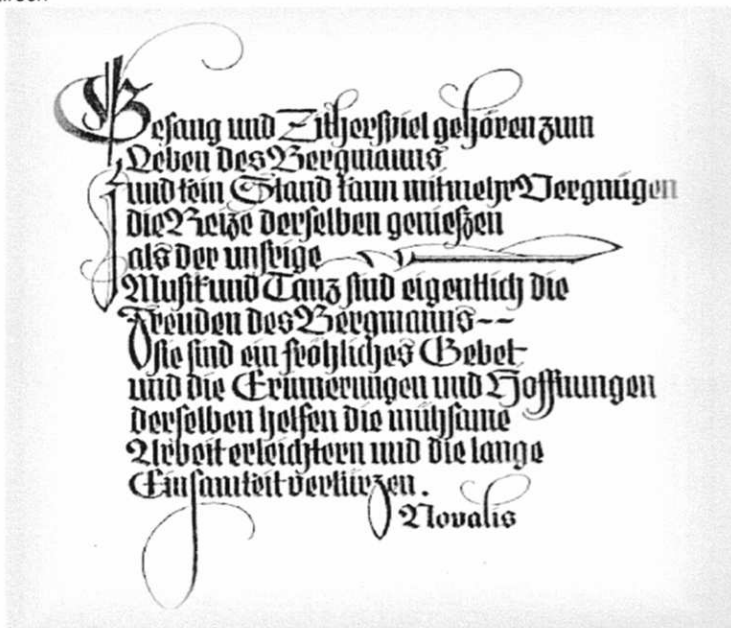 Gesang und Zitherspiel gehören zum
Leben des Bergmanns
und kein Stand kann mit mehr Vergnügen
die Reize derselben genießen
als der unsrige
Musik und Tanz sind eigentlich die
Freuden des Bergmanns--
sie sind ein fröhliches Gebet
und die Erinnerungen und Hoffnungen
derselben helfen die mühsame
Arbeit erleichtern und die lange
Einsamkeit verkürzen.
Novalis